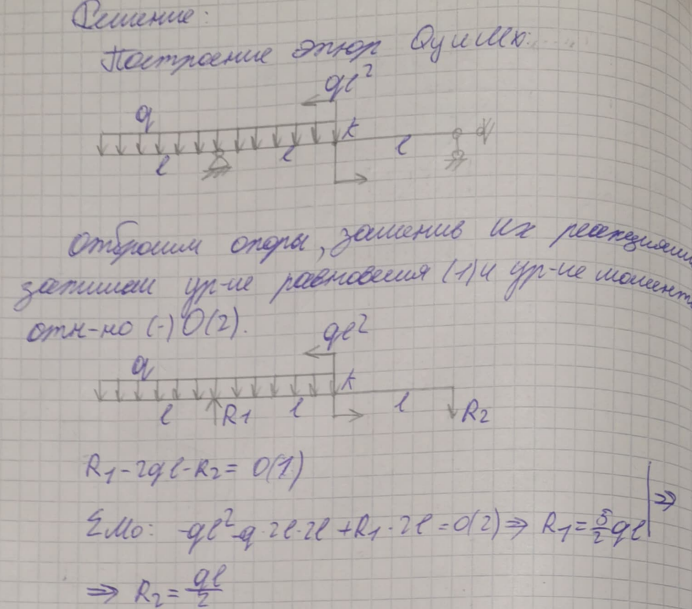 Решение:
Построение эпюр Qy и Mx:
ql²
q
k
l l l
Отбросим опоры, заменив их реакциями
запишем ур-ие равновесия (1) и ур-ие момент
отн-но (·) O(2).
ql²
q
k
l R1 l l R2
R1-2ql-R2= 0(1)
ΣMo: -ql²-q·2l·2l+R1·2l=0(2) ⇒ R1=5/2ql ⇒
⇒ R2=ql/2